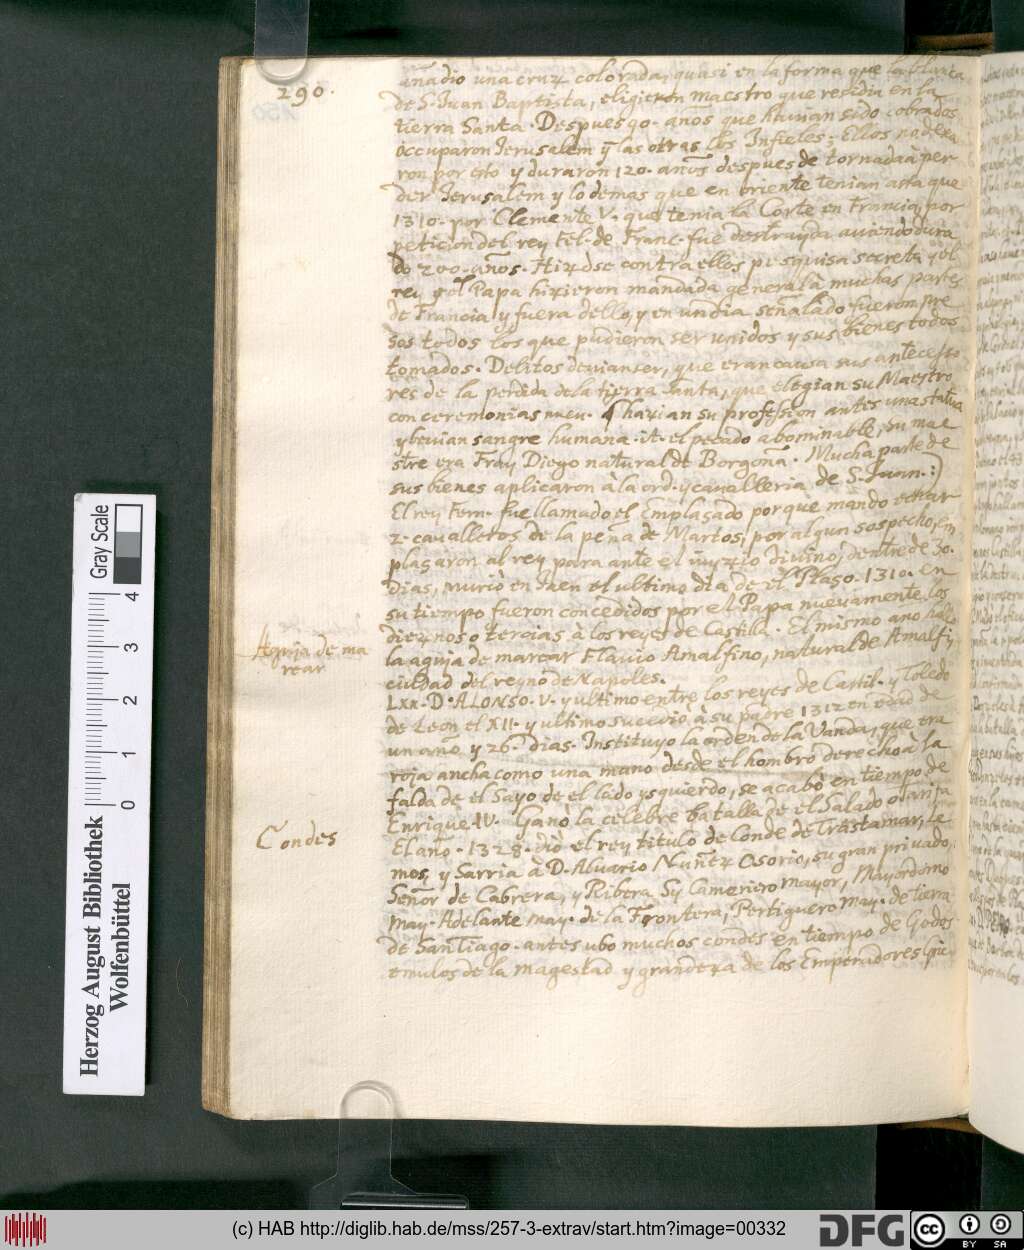 290.
añadio una cruz colorada, quasi en la forma que la blanca
de S. Juan Baptista, eligieron maestro que residia en la
tierra Santa. Despues 90. años que hauian sido cobrados
occuparon Jerusalem y las otras los Infieles; Ellos no dexa
ron por esto y duraron 120. años despues de tornada à per
der Jerusalem y lo demas que en oriente tenian asta que
1310. por Clemente V. que tenia la Corte en Francia, por
peticion del rey Fel. de Franc. fue destruyda auiendo dura
do 200. años. Hizose contra ellos pesquisa secreta y el
rey y el Papa hizieron mandada general à muchas partes
de Francia y fuera dello, y en un dia señalado fueron pre
sos todos los que pudieron ser unidos y sus bienes todos
tomados. Delitos deuian ser, que eran causa sus antecesso
res de la perdida de la tierra santa, que elegian su Maestro
con ceremonias nueu. q hazian su profession antes una statua
y beuian sangre humana. it. el pecado abominable, su mae
stre era Fray Diego natural de Borgoña. Mucha parte de
sus bienes aplicaron à la ord. y caualleria de S. Juan. :)
El rey Fern. fue llamado el Emplaçado porque mando echar
2. caualleros de la peña de Martos, por algun sospecho, Em
plaçaron al rey para ante el iuyzio Diuino, dentre de 30.
dias, murio en Jaen el ultimo dia de el Plaso. 1310. en
su tiempo fueron concedidos por el Papa nueuamente los
diezmos o tercias à los reyes de Castilla. El mismo ano hallo
Aguja de ma
rear
la aguja de marear Flauio Amalfino, natural de Amalfi,
ciudad del reyno de Napoles.
LXX. D. ALONSO. V. y ultimo entre los reyes de Castil. y Toledo
de Leon el XII. y ultimo sucedio à su padre 1312 en edad de
un año y 26. dias. Instituyo la orden de la Vanda, que era
roja ancha como una mano desde el hombro derecho à la
falda de el Sayo de el lado ysquierdo, se acabò en tiempo de
Enrique IV. Gano la celebre batalla de el Salado o Tarifa
Condes
El año. 1328. diò el rey titulo de Conde de Trastamar, Le
mos, y Sarria à D. Aluario Nuñez Osorio, su gran priuado,
Señor de Cabrera, y Ribera Sy Camariero mayor, Mayordomo
may. Adelante may. de la Frontera, Pertiguero may. de tierra
de Santiago. antes ubo muchos condes en tiempo de Godos
emulos de la magestad y grandeza de los Emperadores
Herzog August Bibliothek
Wolfenbüttel
Gray Scale
0 1 2 3 4
(c) HAB http://diglib.hab.de/mss/257-3-extrav/start.htm?image=00332
DFG
cc BY SA